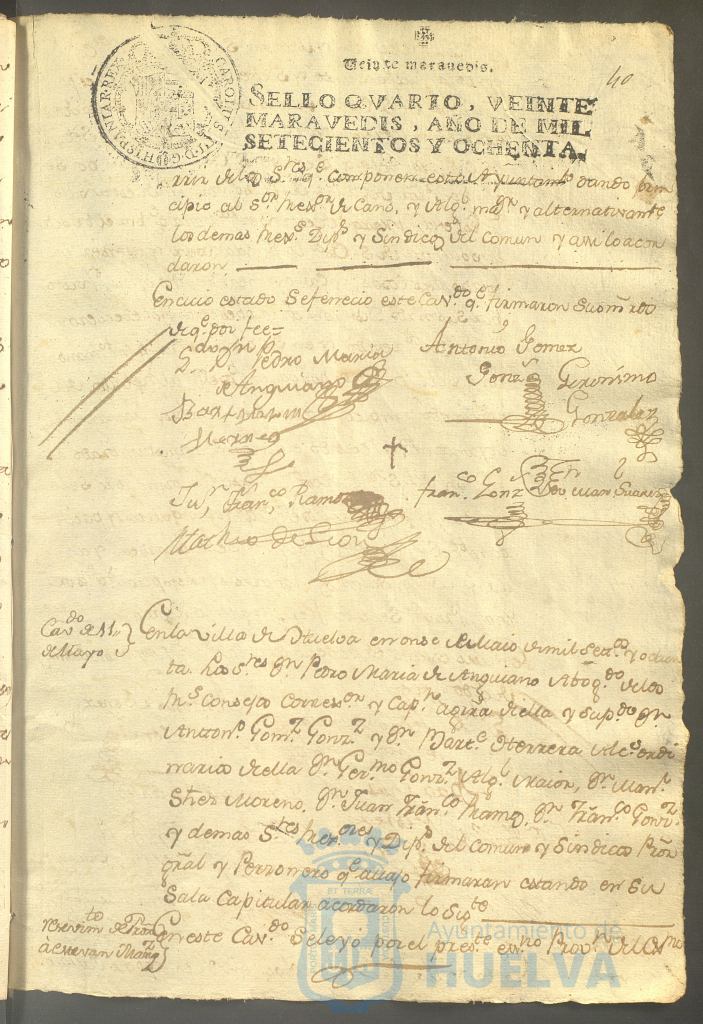 40
Veinte maravedis.
SELLO QVARTO, VEINTE
MARAVEDIS, AÑO DE MIL
SETECIENTOS Y OCHENTA.
CAROLUS III D G HISPANIAR REX
componen este Ayuntamto dando prin
cipio al sor de Cano, y Algl mayr y alternativamte
los demas y Sindico del Comun y assi lo acor
daron
En cuio estado se fenecio este Cavdo qe firmaron su
de qe doy fee=
Ldo Dn Pedro Maria
de Anguiano
Antonio Gomez
Gonz
Geronimo
Gonzalez
Bartolome
Herrera
Jun Franco Ramos
Franco Gonz
Man Suarez
Matheo de Leon
Cavdo de 11
de Mayo
En la villa de Huelva en onse de Maio de mil setos y ochen
ta los Sres Dn Pedro Maria de Anguiano Abogdo de los
Rs Consejos Corregor y Capn a grra de ella y su pdo Dn
Antono Gomz Gonzz y Dn Barte Herrera Alcs ordi
narios de ella Dn Germo Gonzz Algl maior, Dn Manl
Schez Moreno, Dn Juan Franco Ramos, Dn Franco Gonzz
y demas Sres y Dips del Comun y Sindico Pror
gral y Personero qe abajo firmaran estando en su
Sala Capitular acordaron lo sigte
a Estevan
En este Cavdo se leyo por el preste esno Provn del
Ayuntamiento de
HUELVA